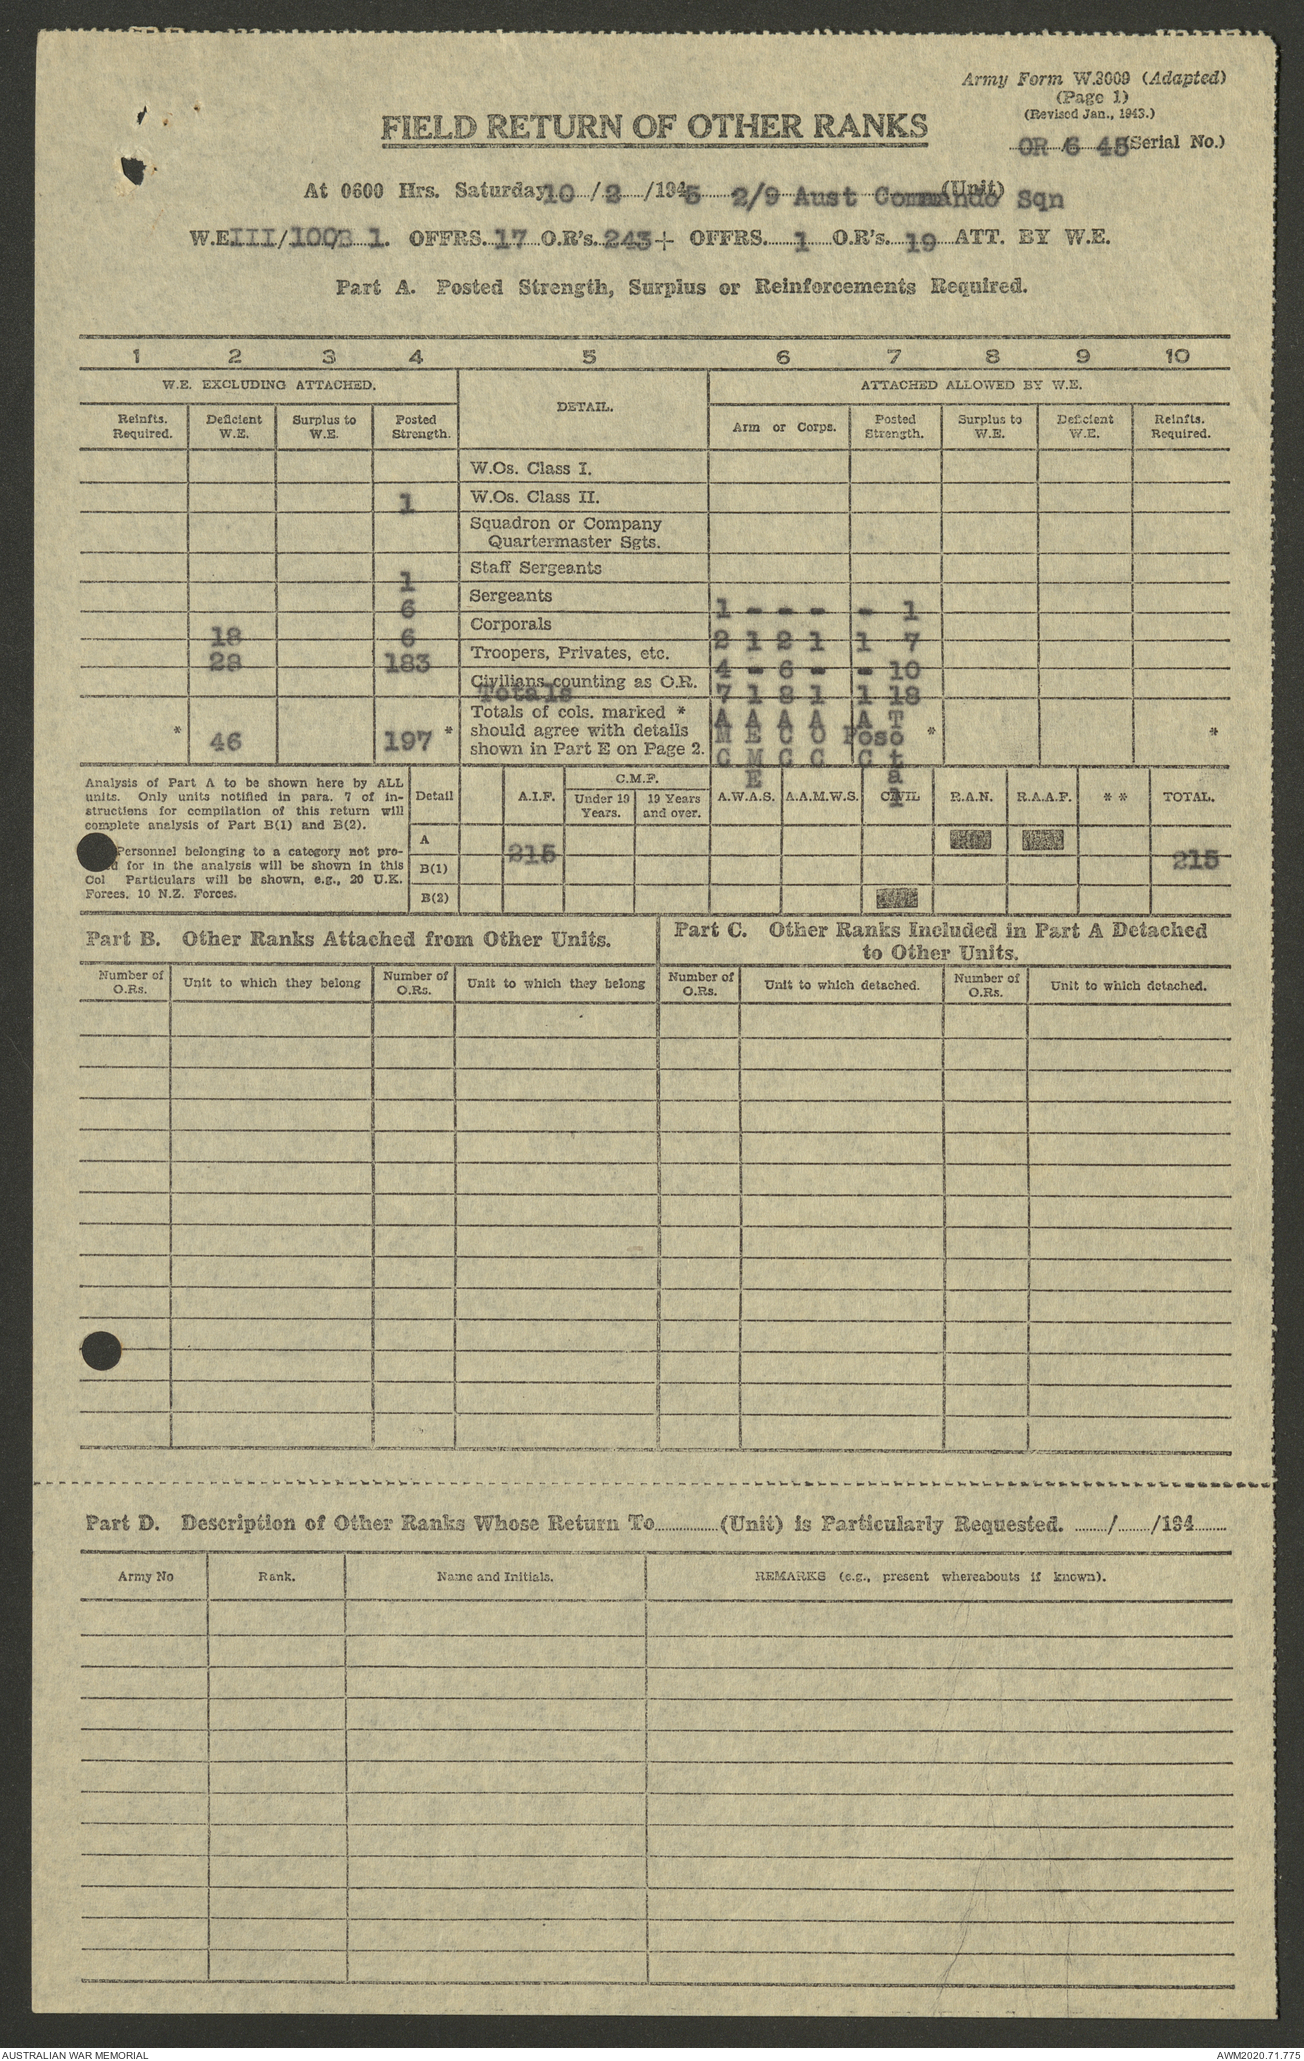 Army Form W.3009 (Adapted)
(Page 1)
(Revised Jan., 1943.)
FIELD RETURN OF OTHER RANKS
OR 6 45 (Serial No.)
At 0600 Hrs. Saturday 10 / 2 /1945 2/9 Aust Commando Sqn (Unit)
W.E. III/100B 1. OFFRS. 17 O.R's. 243 + OFFRS. 1 O.R's. 19 ATT. BY W.E.
Part A. Posted Strength, Surplus or Reinforcements Required.
1 2 3 4 5 6 7 8 9 10
W.E. EXCLUDING ATTACHED. DETAIL. ATTACHED ALLOWED BY W.E.
Reinfts. Required. Deficient W.E. Surplus to W.E. Posted Strength. Arm or Corps. Posted Strength. Surplus to W.E. Deficient W.E. Reinfts. Required.
W.Os. Class I.
1 W.Os. Class II.
Squadron or Company
Quartermaster Sgts.
1 Staff Sergeants
6 Sergeants 1 - - - - 1
18 6 Corporals 2 1 2 1 1 7
28 183 Troopers, Privates, etc. 4 - 6 - - 10
Civilians counting as O.R.
Totals 7 1 8 1 1 18
* 46 197 * Totals of cols. marked * A A A A A T *
should agree with details M E C O Poso
shown in Part E on Page 2. C M C C C t
E a
l
Analysis of Part A to be shown here by ALL
units. Only units notified in para. 7 of in-
structions for compilation of this return will
complete analysis of Part B(1) and B(2).
Personnel belonging to a category not pro-
for in the analysis will be shown in this
Col Particulars will be shown, e.g., 20 U.K.
Forces, 10 N.Z. Forces.
Detail A.I.F. C.M.F. Under 19 Years. 19 Years and over. A.W.A.S. A.A.M.W.S. CIVIL R.A.N. R.A.A.F. * * TOTAL.
A 215 215
B(1)
B(2)
Part B. Other Ranks Attached from Other Units.
Part C. Other Ranks Included in Part A Detached
to Other Units.
Number of O.Rs. Unit to which they belong Number of O.Rs. Unit to which they belong Number of O.Rs. Unit to which detached. Number of O.Rs. Unit to which detached.
Part D. Description of Other Ranks Whose Return To............(Unit) is Particularly Requested. ......../......../194........
Army No Rank. Name and Initials. REMARKS (e.g., present whereabouts if known).
AUSTRALIAN WAR MEMORIAL AWM2020.71.775